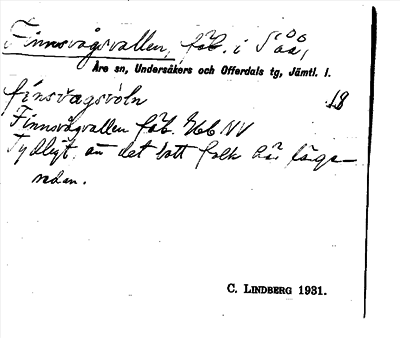 Finnsvågsvallen, fäb. i Såå,
Åre sn, Undersåkers och Offerdals tg, Jämtl. l.
finsvagsvoln 18
Finnsvågvallen fäb. Gkb NV
Tydligt, att det bott folk här länge
sedan.
C. LINDBERG 1931.